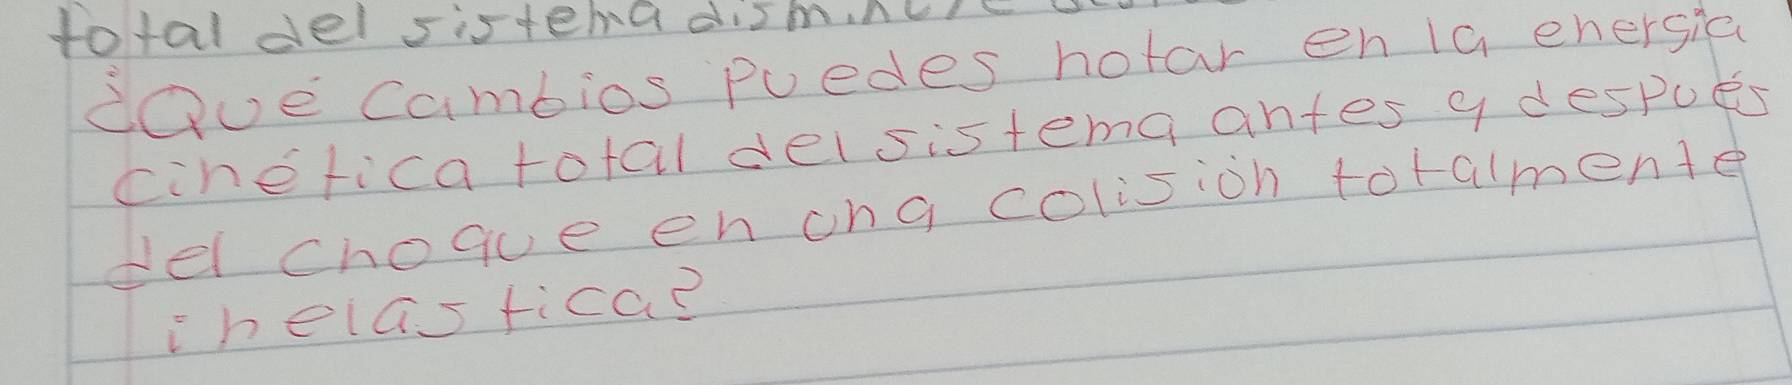 total del sistema disminuye
¿Qué cambios puedes notar en la energia
cinética total del sistema antes y después
del choque en una colisión totalmente
inelastica?